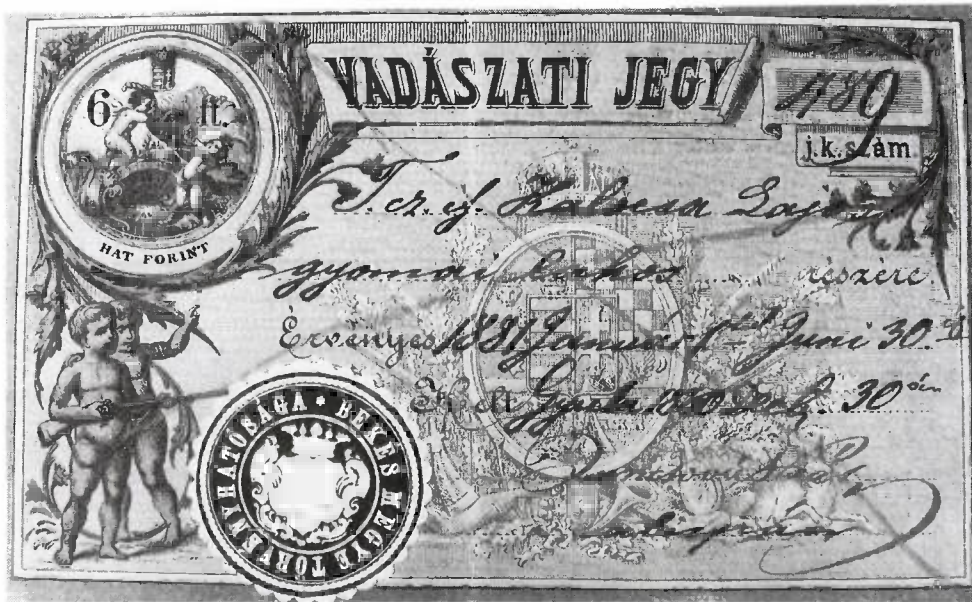 6 ft.
HAT FORINT
VADÁSZATI JEGY
1789
j.k. szám
T. cz. if. Kalocsa Lajos
gyomai lakos részére
Érvényes 1881 Január 1től Juni 30.ig
Kelt Gyula 1880 Deczb. 30án
BÉKÉS MEGYE TÖRVÉNYHATÓSÁGA